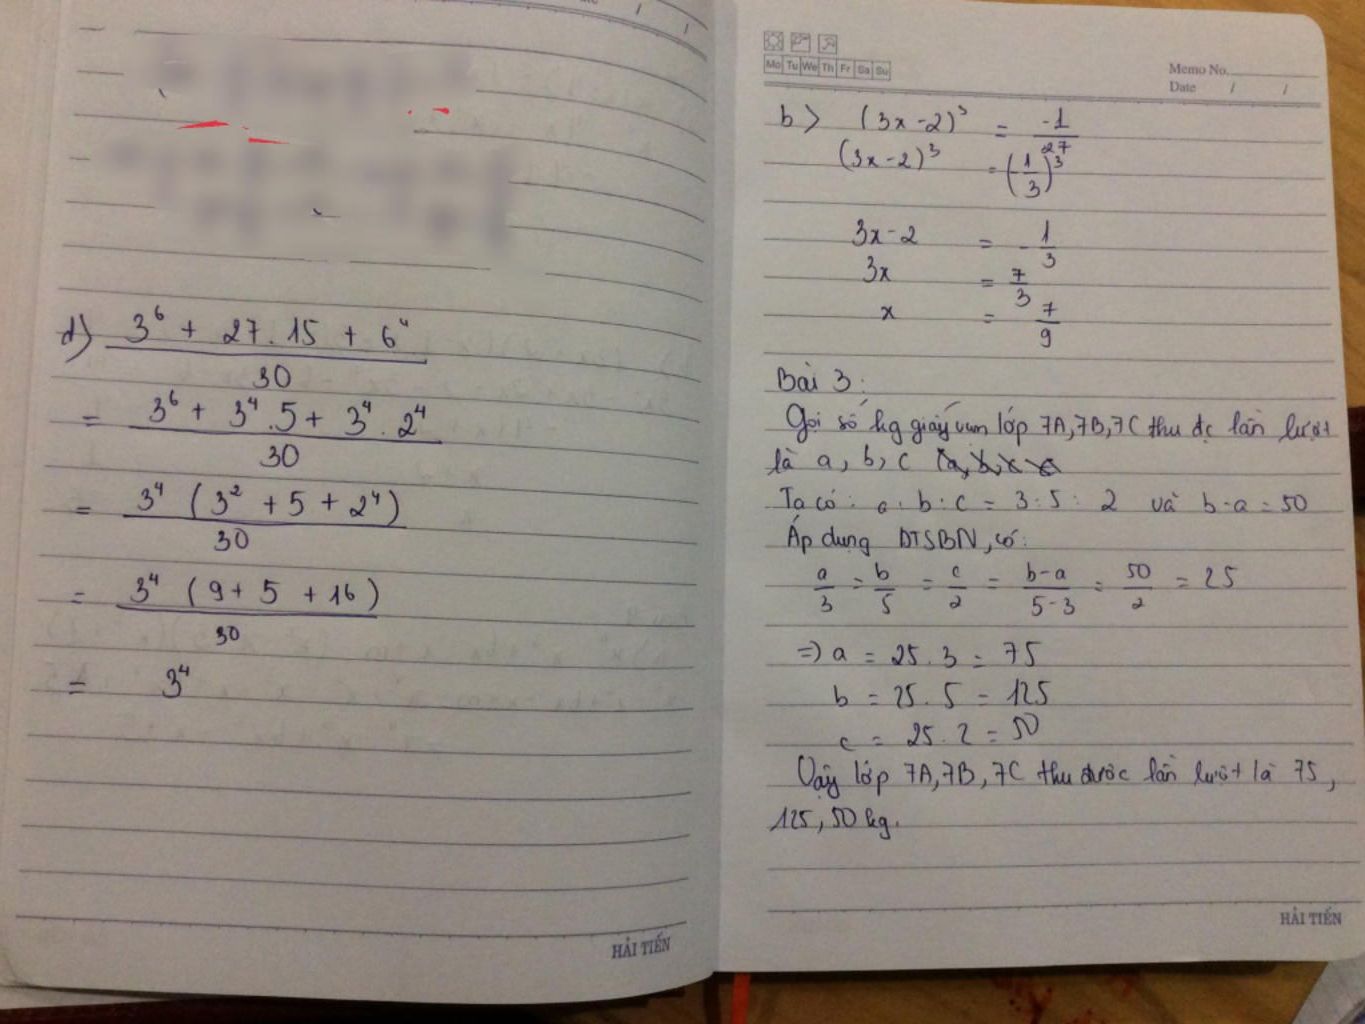 d) (3⁶ + 27 . 15 + 6⁴) / 30
= (3⁶ + 3⁴ . 5 + 3⁴ . 2⁴) / 30
= 3⁴ (3² + 5 + 2⁴) / 30
= 3⁴ (9 + 5 + 16) / 30
= 3⁴
HẢI TIẾN
Mo Tu We Th Fr Sa Su
Memo No.
Date / /
b) (3x - 2)³ = -1/27
(3x - 2)³ = (-1/3)³
3x - 2 = -1/3
3x = 7/3
x = 7/9
Bài 3:
Gọi số kg giấy vụn lớp 7A, 7B, 7C thu đc lần lượt
là a, b, c
Ta có: a : b : c = 3 : 5 : 2 và b - a = 50
Áp dụng DTSBN, có:
a/3 = b/5 = c/2 = (b-a)/(5-3) = 50/2 = 25
=> a = 25 . 3 = 75
b = 25 . 5 = 125
c = 25 . 2 = 50
Vậy lớp 7A, 7B, 7C thu được lần lượt là 75,
125, 50 kg.
HẢI TIẾN